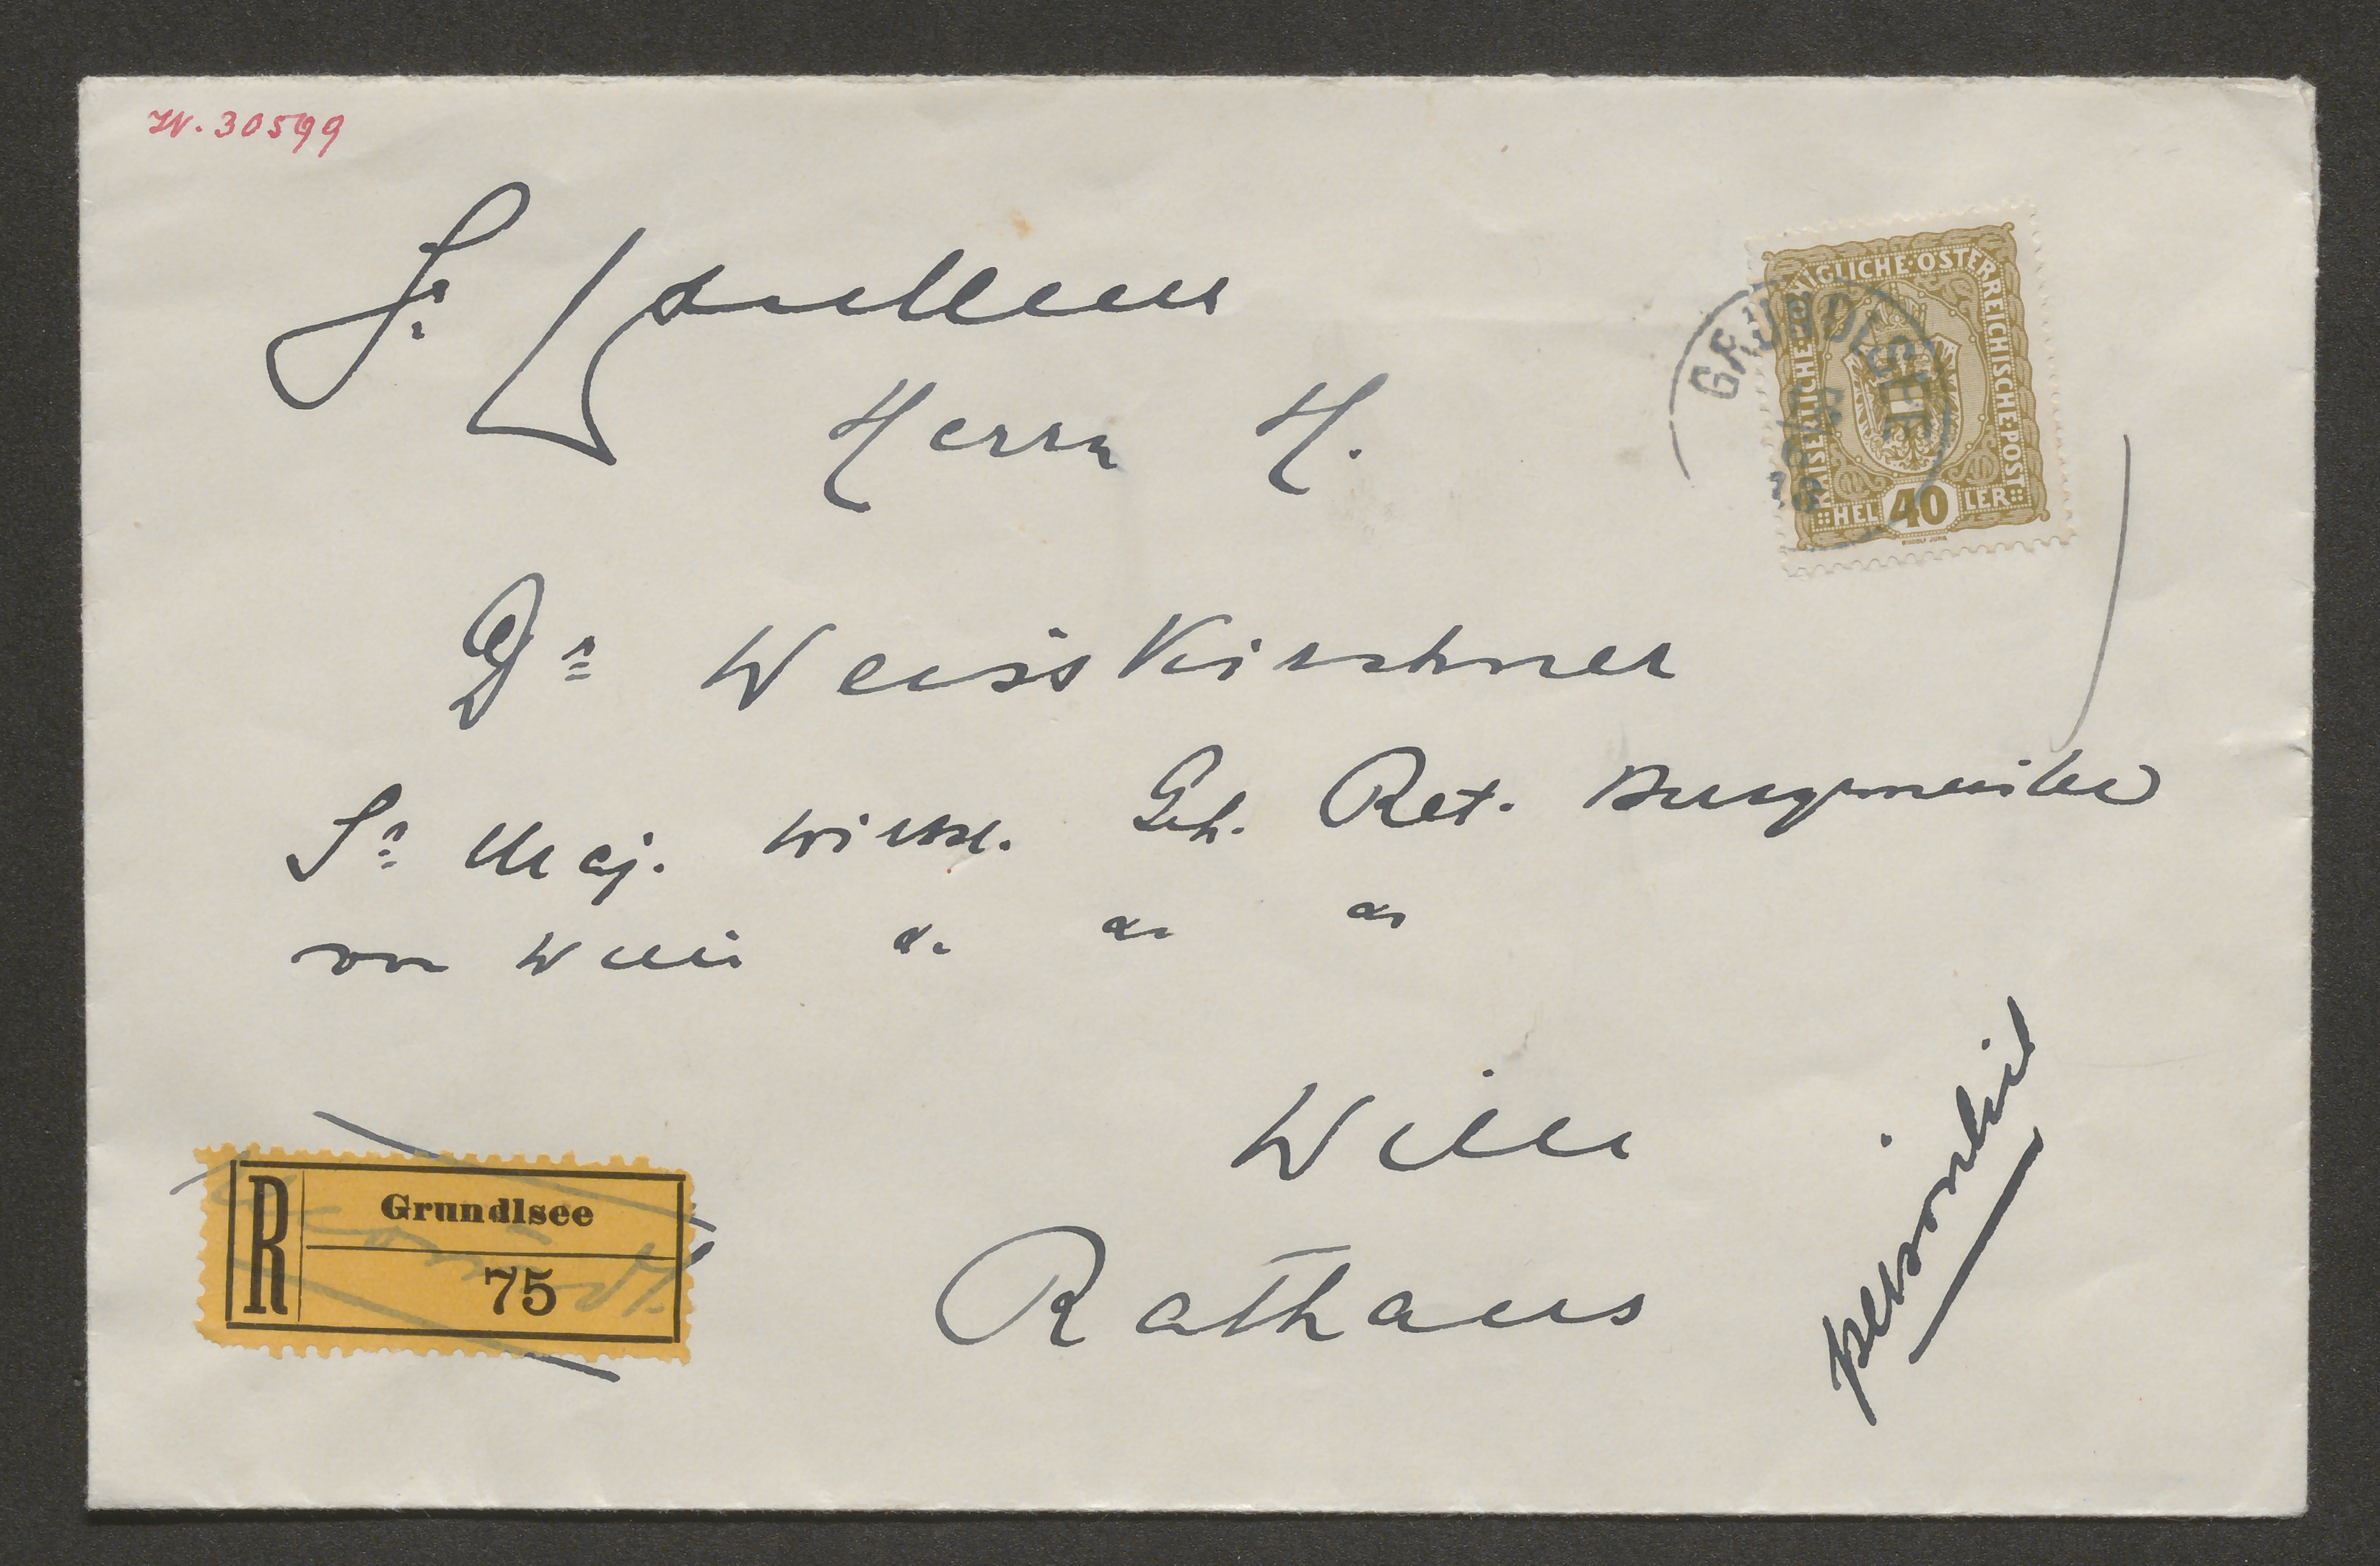 IN. 30599
Sr Exzellenz
Herrn H.
Dr Weisskirchner
Sr Maj. wirkl. Geh. Rat. Burgermeister
von Wien etc. etc. etc.
Wien
Rathaus
persönlich
KAISERLICHE·KÖNIGLICHE·ÖSTERREICHISCHE·POST
HELLER
40
RUDOLF JUNK
GRUNDLSEE
R
Grundlsee
75